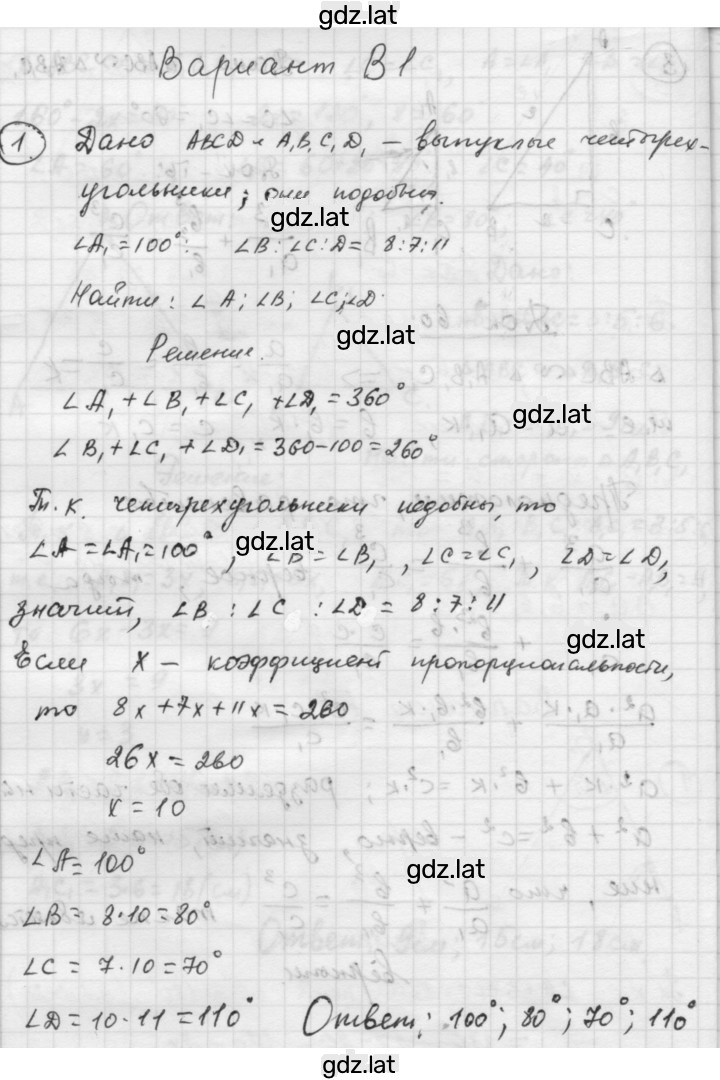 gdz.lat
Вариант В1
1 Дано ABCD и A₁B₁C₁D₁ — выпуклые четырех-
угольники; они подобны.
gdz.lat
∠A₁ = 100°: ∠B : ∠C : D = 8 : 7 : 11
Найти: ∠A; ∠B; ∠C; ∠D.
gdz.lat
Решение.
∠A₁ + ∠B₁ + ∠C₁ + ∠D₁ = 360°
gdz.lat
∠B₁ + ∠C₁ + ∠D₁ = 360 - 100 = 260°
Т.к. четырехугольники подобны, то
gdz.lat
∠A = ∠A₁ = 100°, ∠B = ∠B₁, ∠C = ∠C₁, ∠D = ∠D₁
значит, ∠B : ∠C : ∠D = 8 : 7 : 11
gdz.lat
Если x — коэффициент пропорциональности,
то 8x + 7x + 11x = 260
26x = 260
x = 10
∠A = 100°
gdz.lat
∠B = 8 · 10 = 80°
∠C = 7 · 10 = 70°
∠D = 10 · 11 = 110° Ответ: 100°; 80°; 70°; 110°
gdz.lat